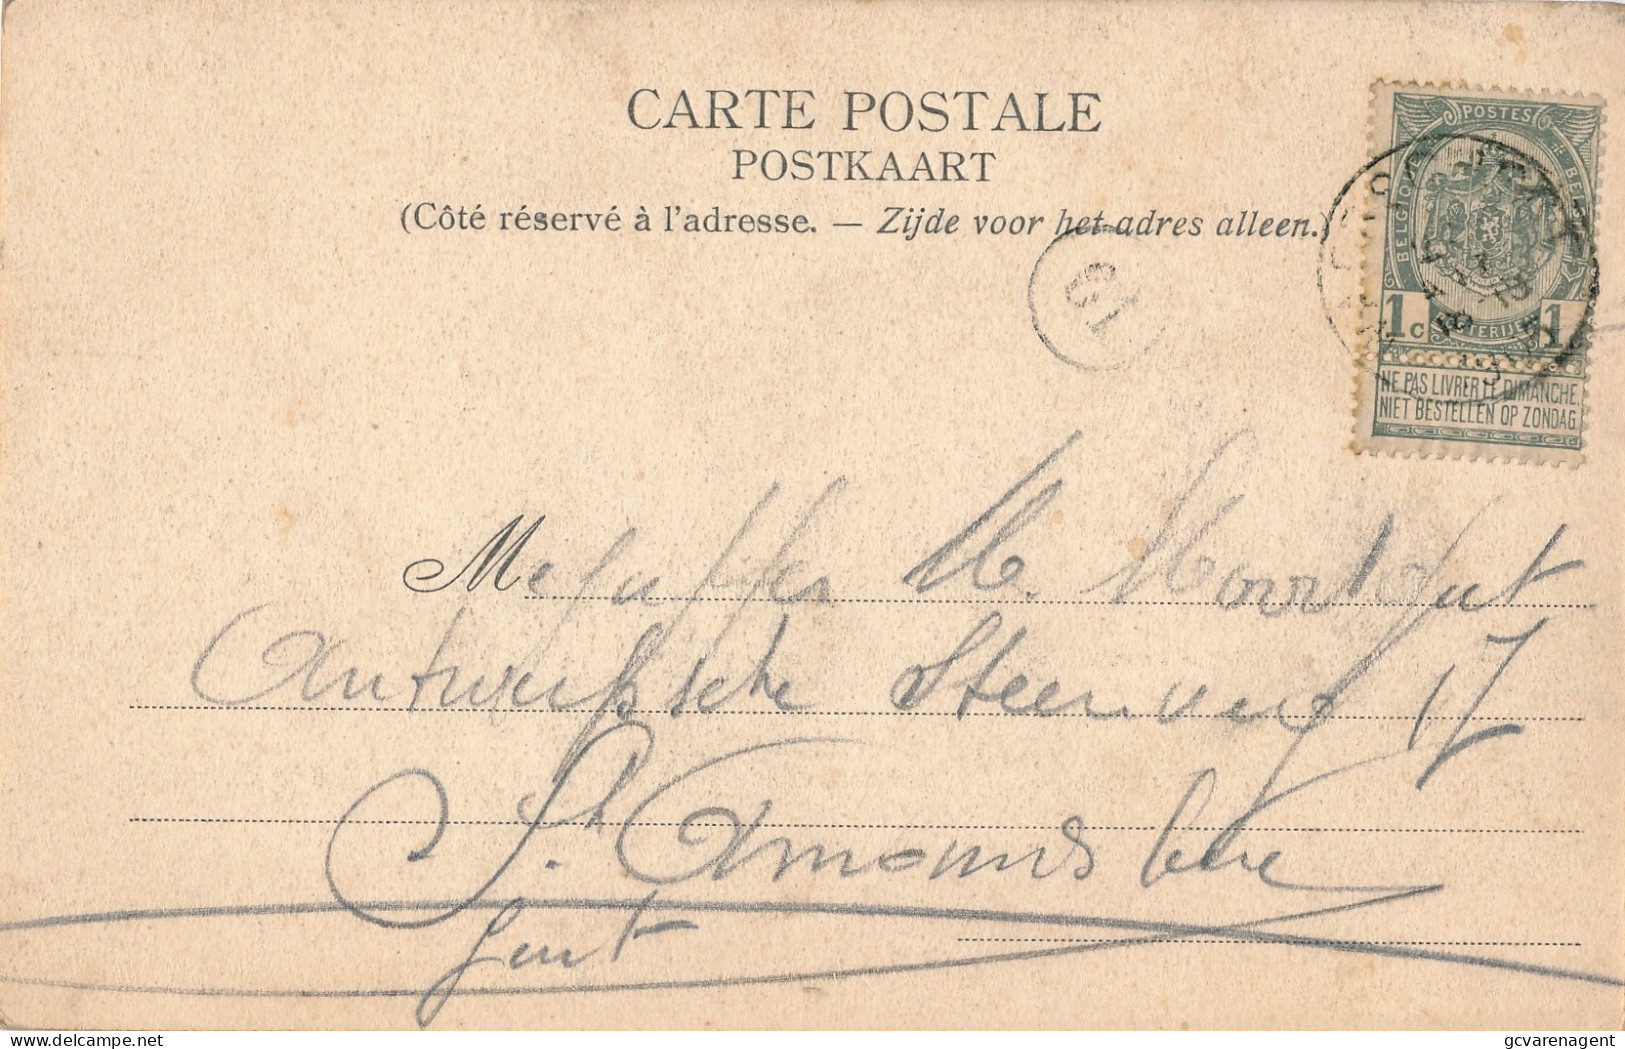 CARTE POSTALE
POSTKAART
(Côté réservé à l'adresse. — Zijde voor het adres alleen.)
POSTES
BELGIQUE
1c 1
NE PAS LIVRER LE DIMANCHE.
NIET BESTELLEN OP ZONDAG
19
Mejuffer M.
Antwerpsche Steenweg 17
St. Amands
Gent
delcampe.net
gcvarenagent